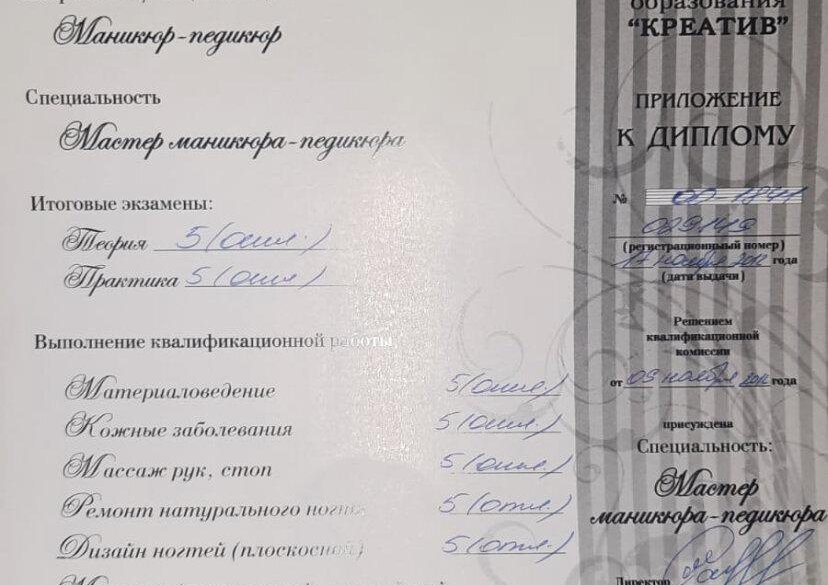 Маникюр-педикюр
Специальность
Мастер маникюра-педикюра
Итоговые экзамены:
Теория 5 (отл.)
Практика 5 (отл.)
Выполнение квалификационной работы
Материаловедение 5 (отл.)
Кожные заболевания 5 (отл.)
Массаж рук, стоп 5 (отл.)
Ремонт натурального ногтя 5 (отл.)
Дизайн ногтей (плоскосной) 5 (отл.)
образования
"КРЕАТИВ"
ПРИЛОЖЕНИЕ
К ДИПЛОМУ
№ 00-1841
029149
(регистрационный номер)
17 ноября 2012 года
(дата выдачи)
Решением
квалификационной
комиссии
от 09 ноября 2012 года
присуждена
Специальность:
Мастер
маникюра-педикюра
Директор